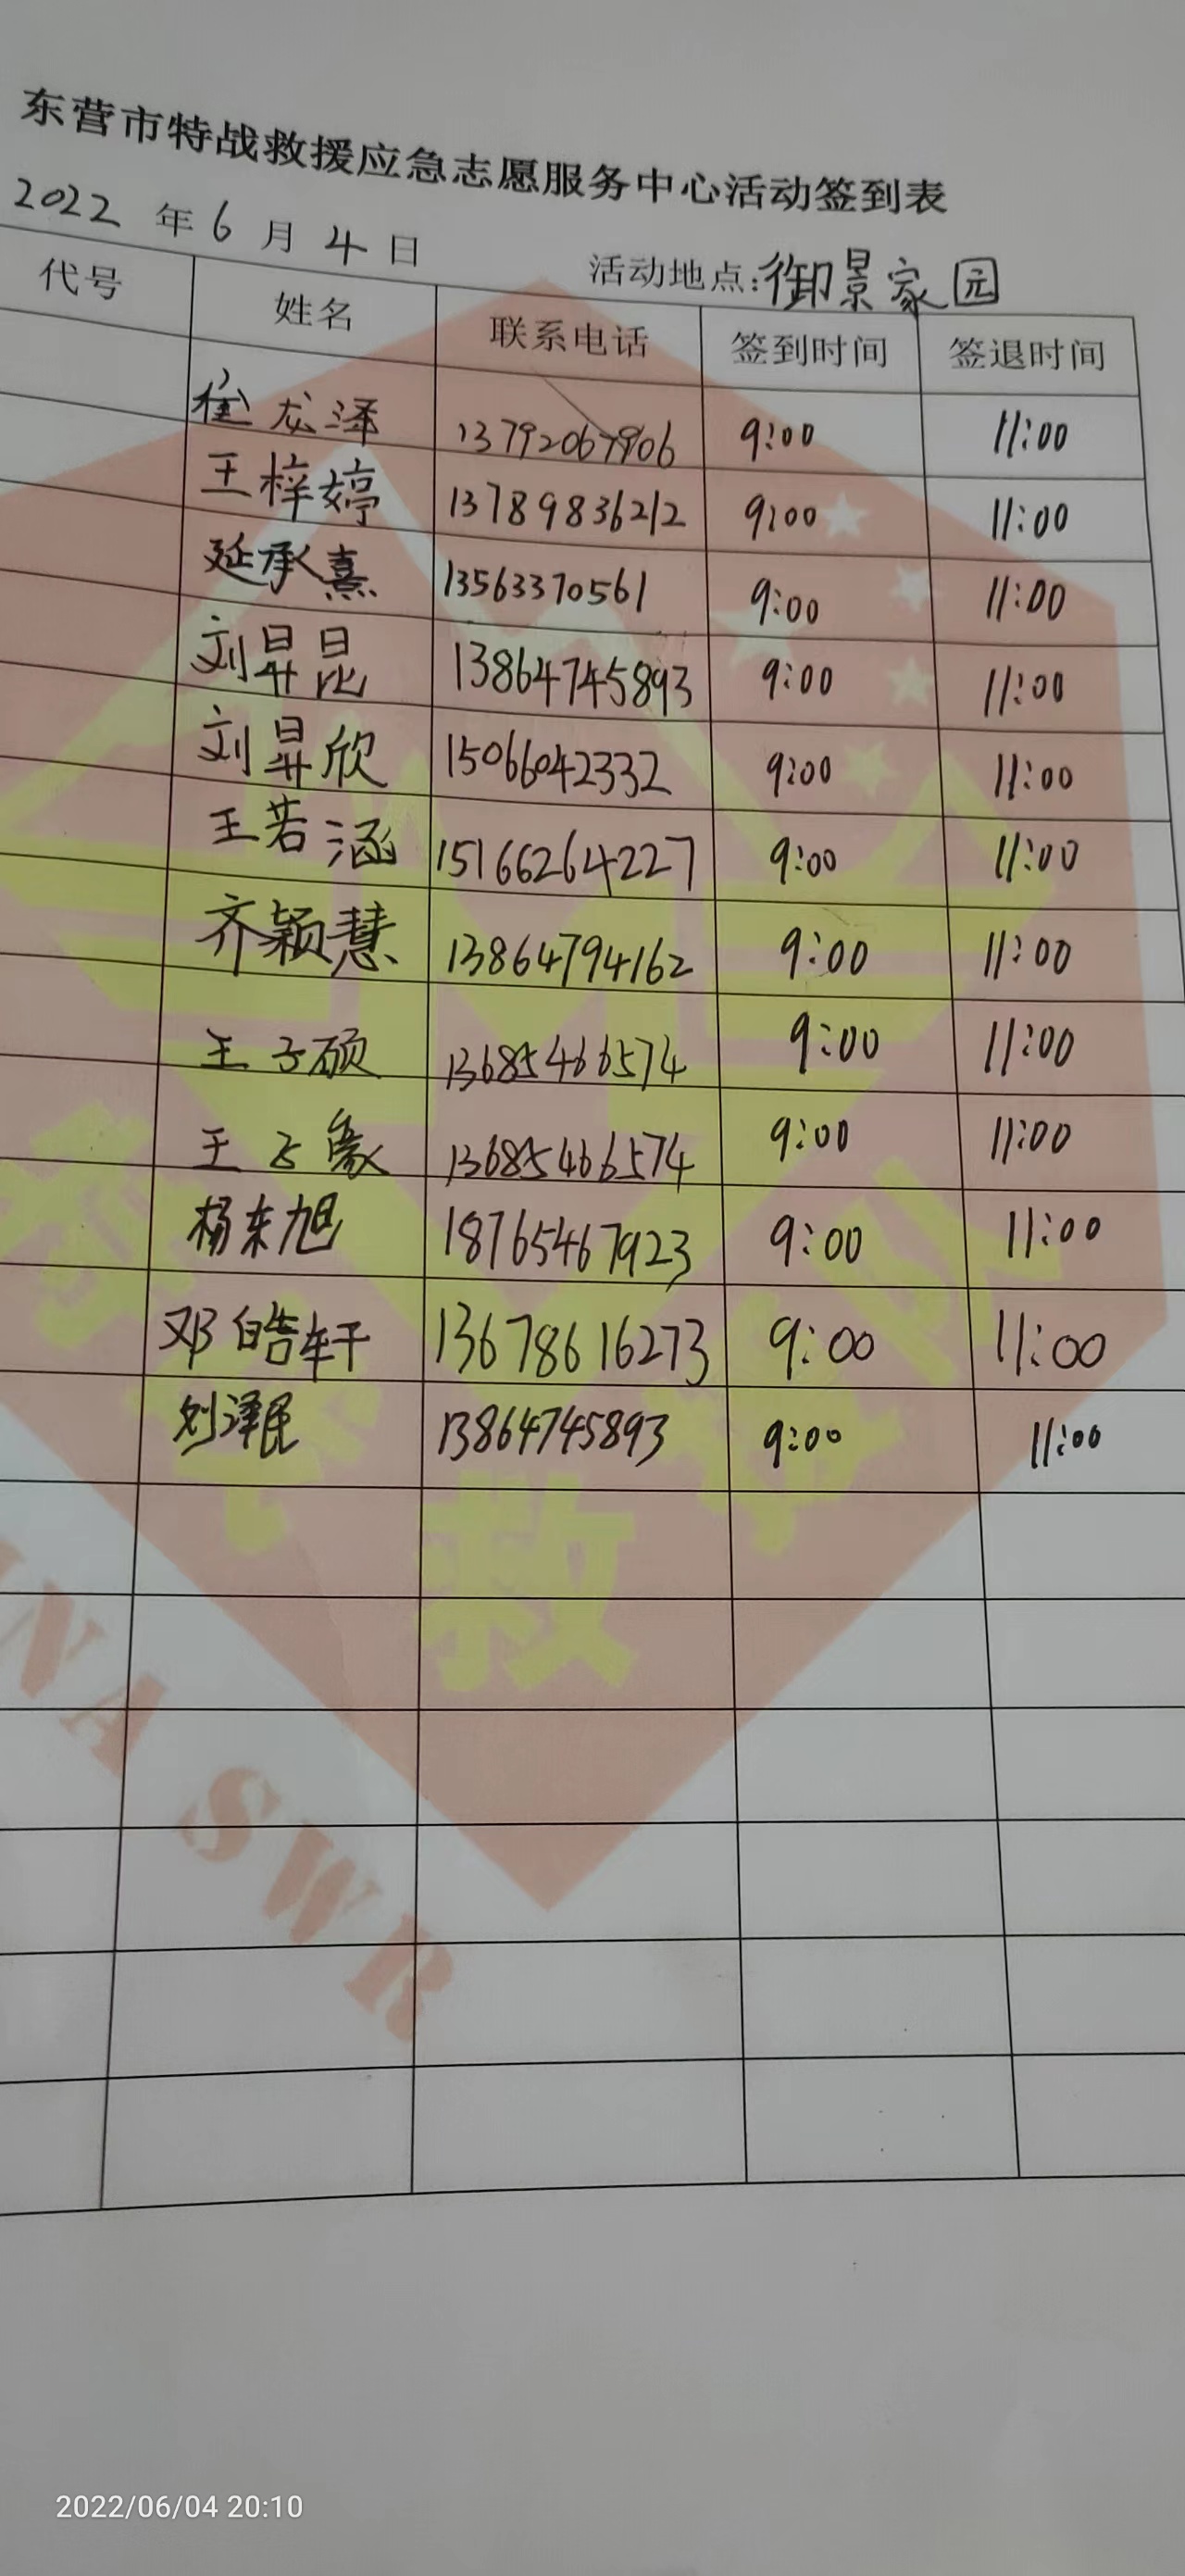 东营市特战救援应急志愿服务中心活动签到表
2022 年 6 月 4 日 活动地点:御景家园
代号 姓名 联系电话 签到时间 签退时间
龙泽 13792067906 9:00 11:00
王梓婷 13789836212 9:00 11:00
延承熹 13563370561 9:00 11:00
刘昇昆 13864745893 9:00 11:00
刘昇欣 15066042332 9:00 11:00
王若涵 15166264227 9:00 11:00
齐颖慧 13864794162 9:00 11:00
王子硕 13685466574 9:00 11:00
王子豪 13685466574 9:00 11:00
杨东旭 18765467923 9:00 11:00
邓皓轩 13678616273 9:00 11:00
刘泽民 13864745893 9:00 11:00
救
INA SWR
2022/06/04 20:10